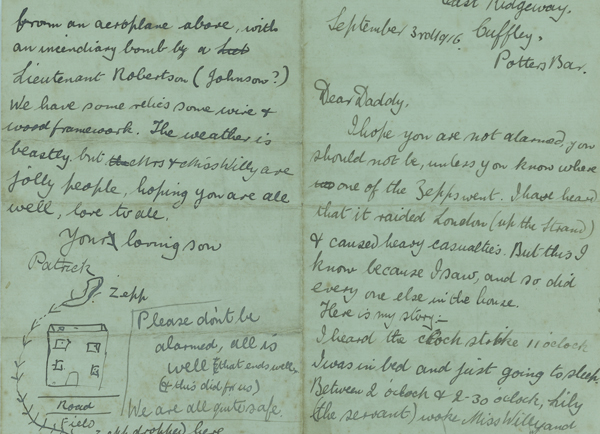 from an aeroplane above, with
an incendiary bomb by a
Lieutenant Robertson (Johnson?)
We have some relics some wire &
wood framework. The weather is
beastly but Mrs & Miss Willy are
jolly people, hoping you are all
well, love to all.
Your loving son
Patrick
Zepp
Please don't be
alarmed, all is
well (that ends well
(& this did for us)
We are all quite safe.
Road
Field
Zepp dropped here
East Ridgeway.
September 3rd 1916. Cuffley.
Potters Bar.
Dear Daddy,
I hope you are not alarmed, you
should not be, unless you know where
one of the Zepps went. I have heard
that it raided London (up the Strand)
& caused heavy casualties. But this I
know because I saw, and so did
every one else in the house.
Here is my story:-
I heard the clock strike 11 o'clock
I was in bed and just going to sleep.
Between 2 o'clock & 2-30 o'clock, Lily
(the servant) woke Miss Willy and